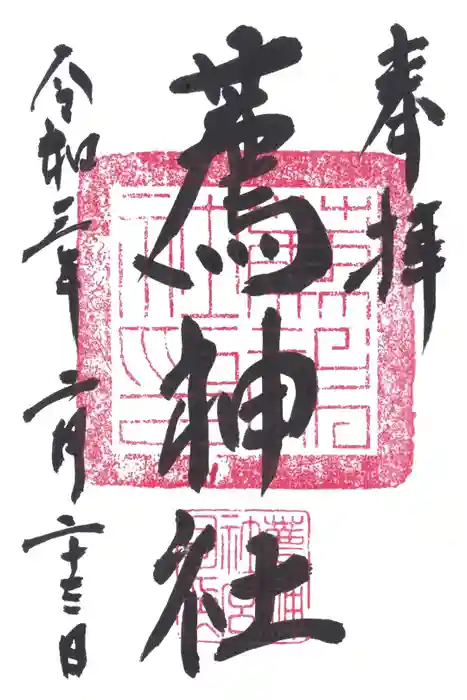 奉拝
薦神社
令和三年二月二十三日